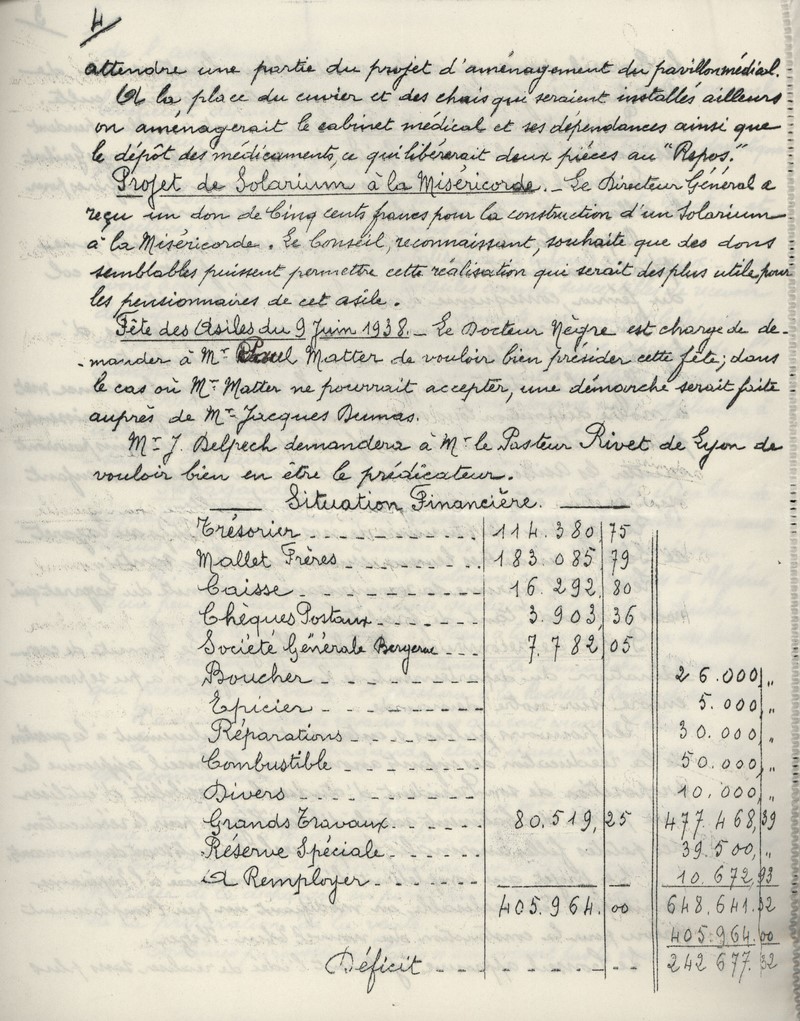 4
attendre une partie du projet d'aménagement du pavillon médical.
A la place du cuvier et des chais qui seraient installés ailleurs
on aménagerait le cabinet médical et ses dépendances ainsi que
le dépôt des médicaments, ce qui libérerait deux pièces au "Repos."
Projet de Solarium à la Miséricorde. _ Le Directeur Général a
reçu un don de Cinq cents francs pour la construction d'un Solarium
à la Miséricorde. Le Conseil, reconnaissant, souhaite que des dons
semblables puissent permettre cette réalisation qui serait des plus utile pour
les pensionnaires de cet asile.
Fête des Asiles du 9 Juin 1938. _ Le Docteur Nègre est chargé de de-
-mander à Mr Paul Matter de vouloir bien présider cette fête; dans
le cas où Mr Matter ne pourrait accepter, une démarche serait faite
auprès de Mr Jacques Dumas.
Mr J. Delpech demandera à Mr le Pasteur Rivet de Lyon de
vouloir bien en être le prédicateur.
Situation Financière.
Trésorier 114.380 75
Mallet Frères 183.085 79
Caisse 16.292, 80
Chèques Postaux 3.903, 36
Société Générale Bergerac 7.782 05
Boucher 26.000 "
Epicier 5.000 "
Réparations 30.000 "
Combustible 50.000 "
Divers 10.000, "
Grands Travaux 80.519, 25 477.468, 39
Réserve Spéciale 39.500, "
A Remployer 10.672, 93
405.964. 00 648.641. 32
405.964. 00
Déficit 242 677. 32